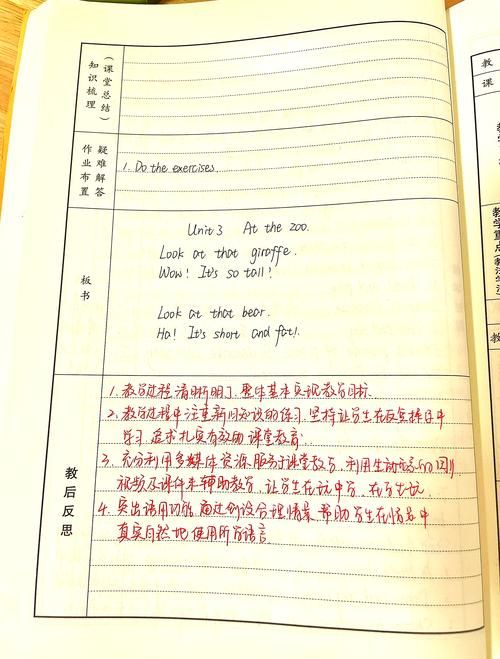 知识梳理
（课堂总结）
作业布置
疑难解答
1. Do the exercises.
板书
Unit 3 At the zoo.
Look at that giraffe.
Wow! It's so tall!
Look at that bear.
Ha! It's short and fat!
教后反思
1. 教学过程清晰明了，整体基本实现教学目标.
2. 教学过程中注重新旧知识的练习，坚持让学生在反复操日中
学习，追求扎实有效的课堂教育.
3. 充分利用多媒体资源服务于课堂教学，利用生动的图片
视频及课件来辅助教学，让学生在玩中学，在学中玩.
4. 突出语用功能，通过创设合理情景，帮助学生在情景中
真实自然地使用所学语言.
教
课
教学重点
教